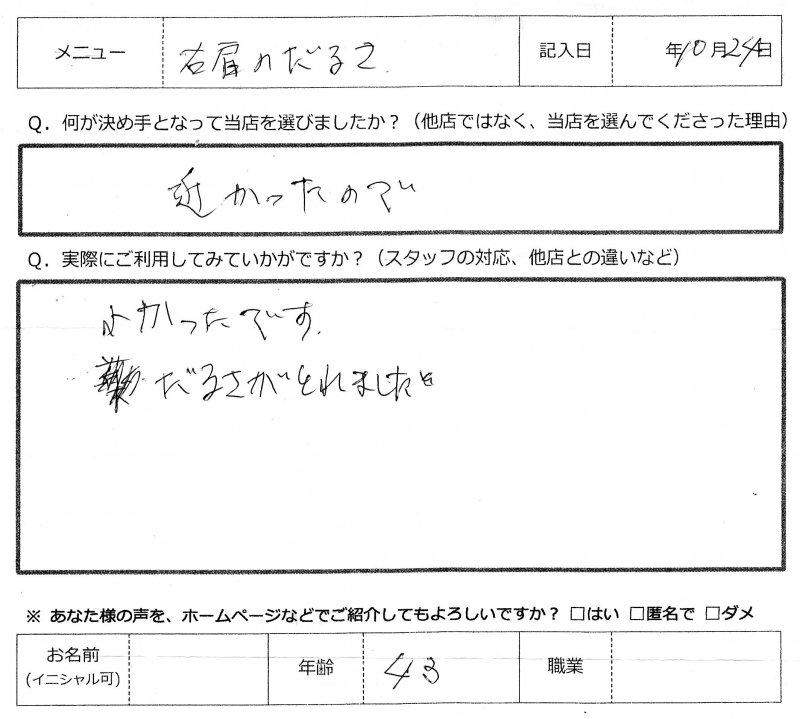 メニュー 右肩のだるさ. 記入日 年10月24日
Q. 何が決め手となって当店を選びましたか？（他店ではなく、当店を選んでくださった理由）
近かったので
Q. 実際にご利用してみていかがですか？（スタッフの対応、他店との違いなど）
よかったです.
だるさがとれました。
※ あなた様の声を、ホームページなどでご紹介してもよろしいですか？ □はい □匿名で □ダメ
お名前 年齢 43 職業
(イニシャル可)